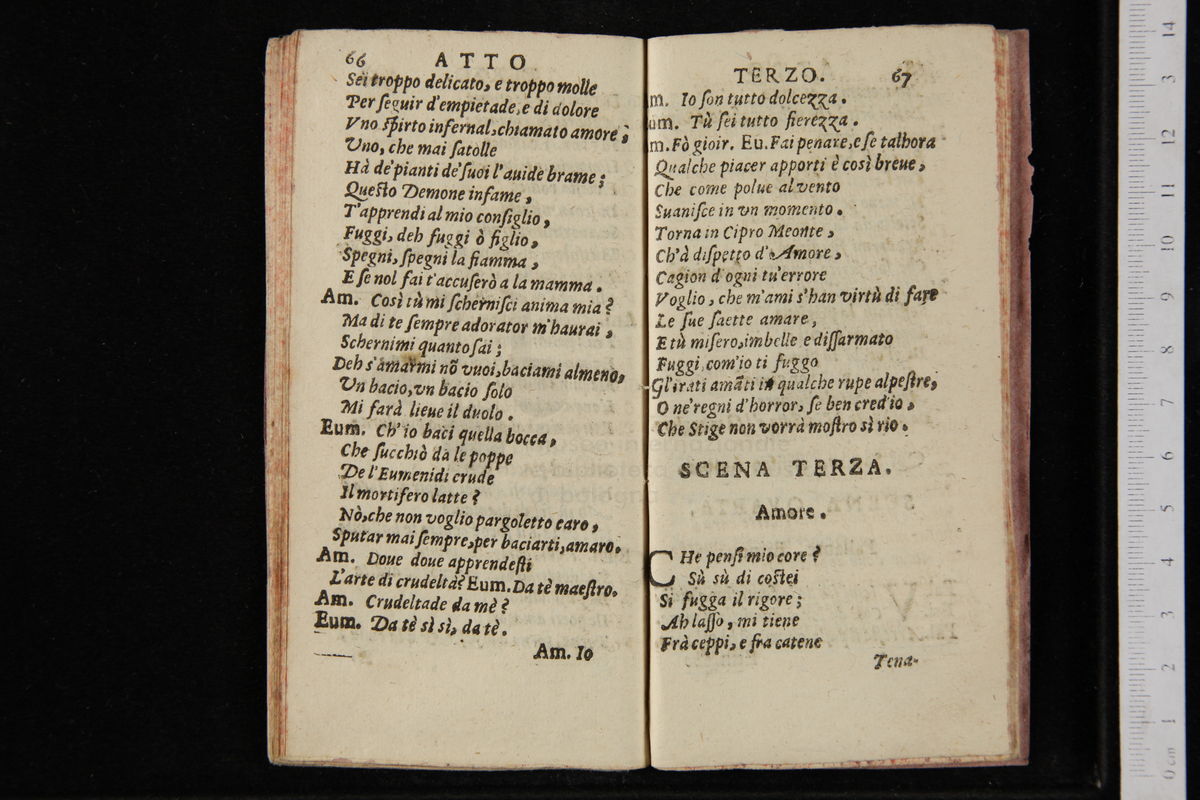 66 ATTO
Sei troppo delicato, e troppo molle
Per ſeguir d'empietade, e di dolore
Vno ſpirto infernal, chiamato amore;
Vno, che mai ſatolle
Hà de' pianti de' ſuoi l'auide brame;
Queſto Demone infame,
T'apprendi al mio conſiglio,
Fuggi, deh fuggi ò figlio,
Spegni, ſpegni la fiamma,
E ſe nol fai t'accuſerò a la mamma.
Am. Così tù mi ſcherniſci anima mia?
Ma di te ſempre adorator m'haurai,
Schernimi quanto ſai;
Deh s'amarmi nõ vuoi, baciami almeno,
Vn bacio, vn bacio ſolo
Mi farà lieue il duolo.
Eum. Ch'io baci quella bocca,
Che ſucchiò da le poppe
De l'Eumenidi crude
Il mortifero latte?
Nò, che non voglio pargoletto caro,
Sputar mai ſempre, per baciarti, amaro.
Am. Doue doue apprendeſti
L'arte di crudeltà? Eum. Da tè maeſtro.
Am. Crudeltade da mè?
Eum. Da tè sì sì, da tè.
Am. Io
TERZO. 67
m. Io ſon tutto dolcezza.
um. Tù ſei tutto fierezza.
m. Fò gioir. Eu. Fai penare, e ſe talhora
Qualche piacer apporti è così breue,
Che come polue al vento
Suaniſce in vn momento.
Torna in Cipro Meonte,
Ch'à diſpetto d'Amore,
Cagion d'ogni tu'errore
Voglio, che m'ami s'han virtù di fare
Le ſue ſaette amare,
E tù miſero, imbelle e diſſarmato
Fuggi, com'io ti fuggo
Gl'irati amãti in qualche rupe alpeſtre,
O ne' regni d'horror, ſe ben cred'io,
Che Stige non vorrà moſtro sì rio.
SCENA TERZA.
Amore.
CHe penſi mio core?
Sù sù di coſtei
Si fugga il rigore;
Ah laſſo, mi tiene
Frà ceppi, e fra catene
Tena-